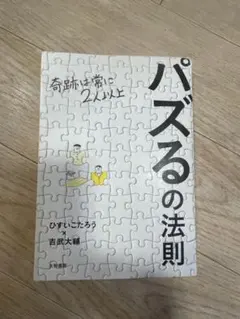 パズるの法則
奇跡は常に
2人以上
ひすいこたろう
×
吉武大輔